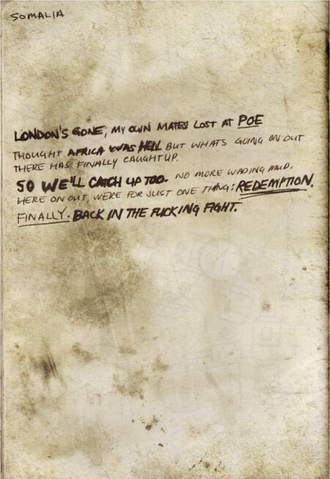 SOMALIA
LONDON'S GONE, MY OWN MATES LOST AT POE
THOUGHT AFRICA WAS HELL BUT WHATS GOING ON OUT
THERE HAS FINALLY CAUGHT UP.
SO WE'LL CATCH UP TOO. NO MORE WADING MUD.
HERE ON OUT, WERE FOR JUST ONE THING: REDEMPTION.
FINALLY. BACK IN THE FUCKING FIGHT.